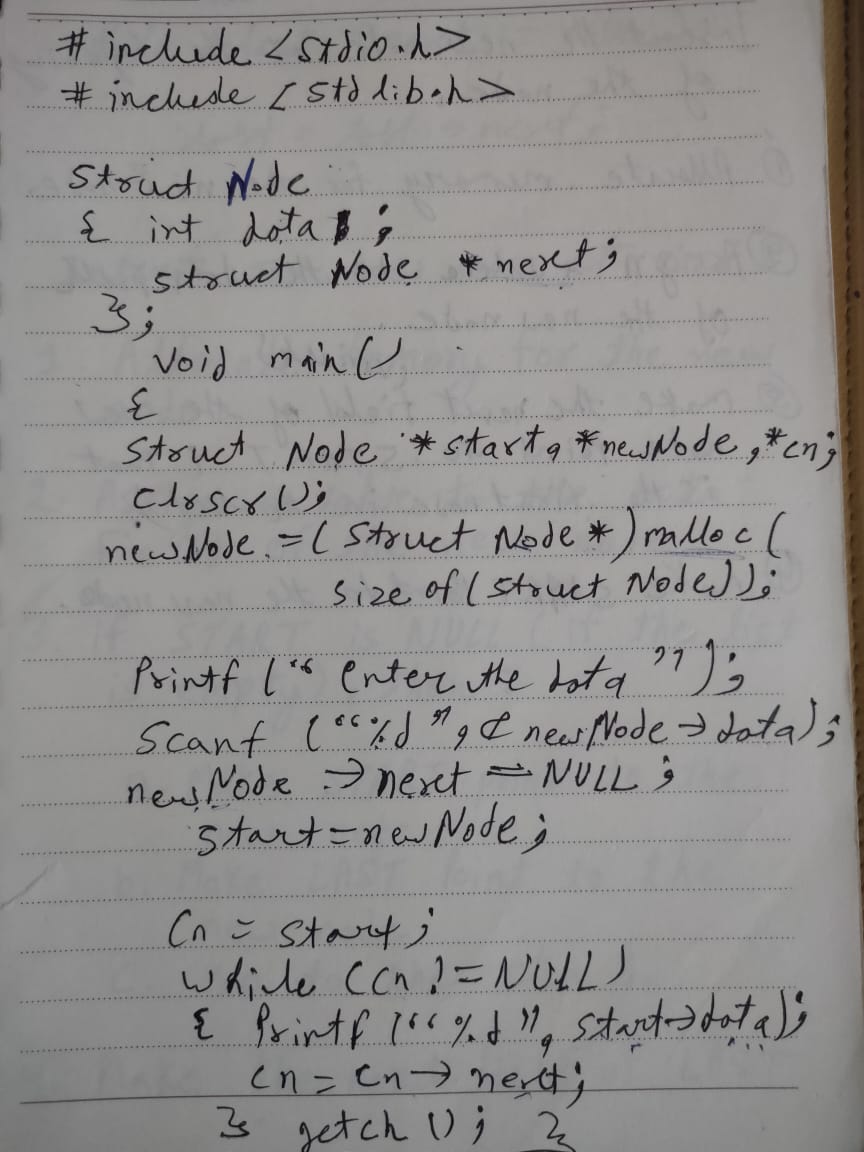 # include <stdio.h>
# include <stdlib.h>
struct Node
{ int data ;
struct Node *next;
};
void main()
{
struct Node *start, *newNode, *cn;
clrscr();
newNode = (struct Node *) malloc (
size of (struct Node));
Printf (" enter the data ");
Scanf ("%d", & newNode→data);
newNode → next = NULL ;
start = newNode;
Cn = start;
while (cn != NULL)
{ Printf ("%d", start→data);
cn = cn → next;
} getch (); }